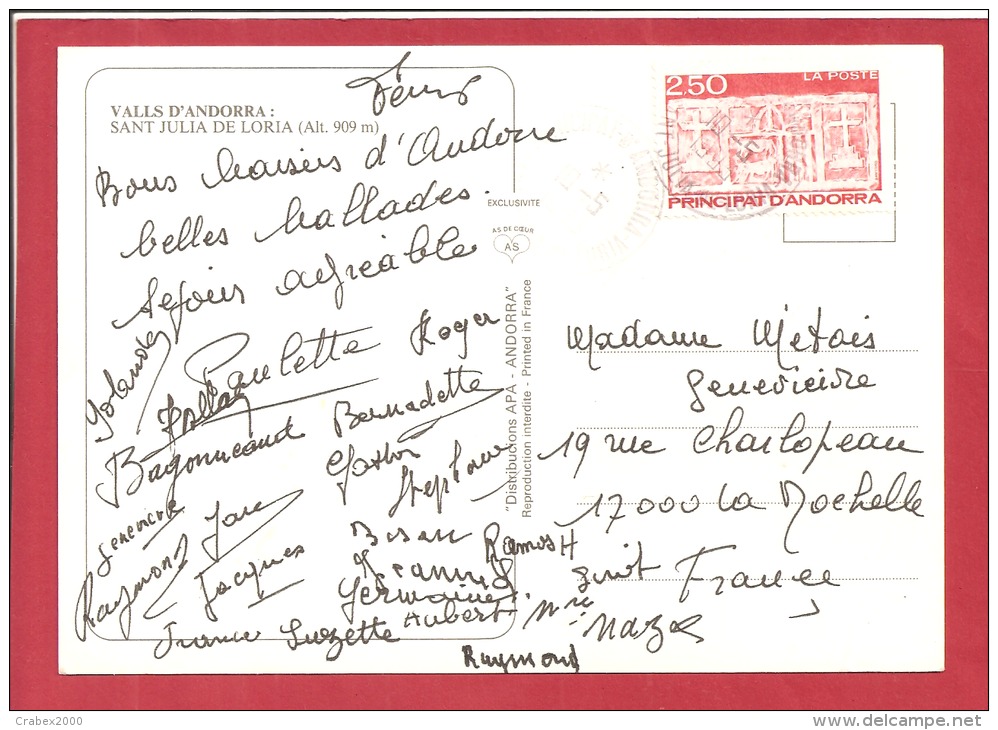 VALLS D'ANDORRA :
SANT JULIA DE LORIA (Alt. 909 m)
Bons baisers d'Andorre
belles ballades.
Sejour agréable
Yolande
Paulette Roger
Bernadette
Gaston
Stephane
Genevieve
Raymond
Jacques
Germaine
Aubert
France Suzette
Ramos H
Raymond
EXCLUSIVITE
AS DE CŒUR
AS
"Distribucions APA - ANDORRA"
Reproduction interdite - Printed in France
2.50
LA POSTE
PRINCIPAT D'ANDORRA
Madame Métais
Genevieve
19 rue Charlopeau
17000 La Rochelle
France
Crabex2000
delcampe.net